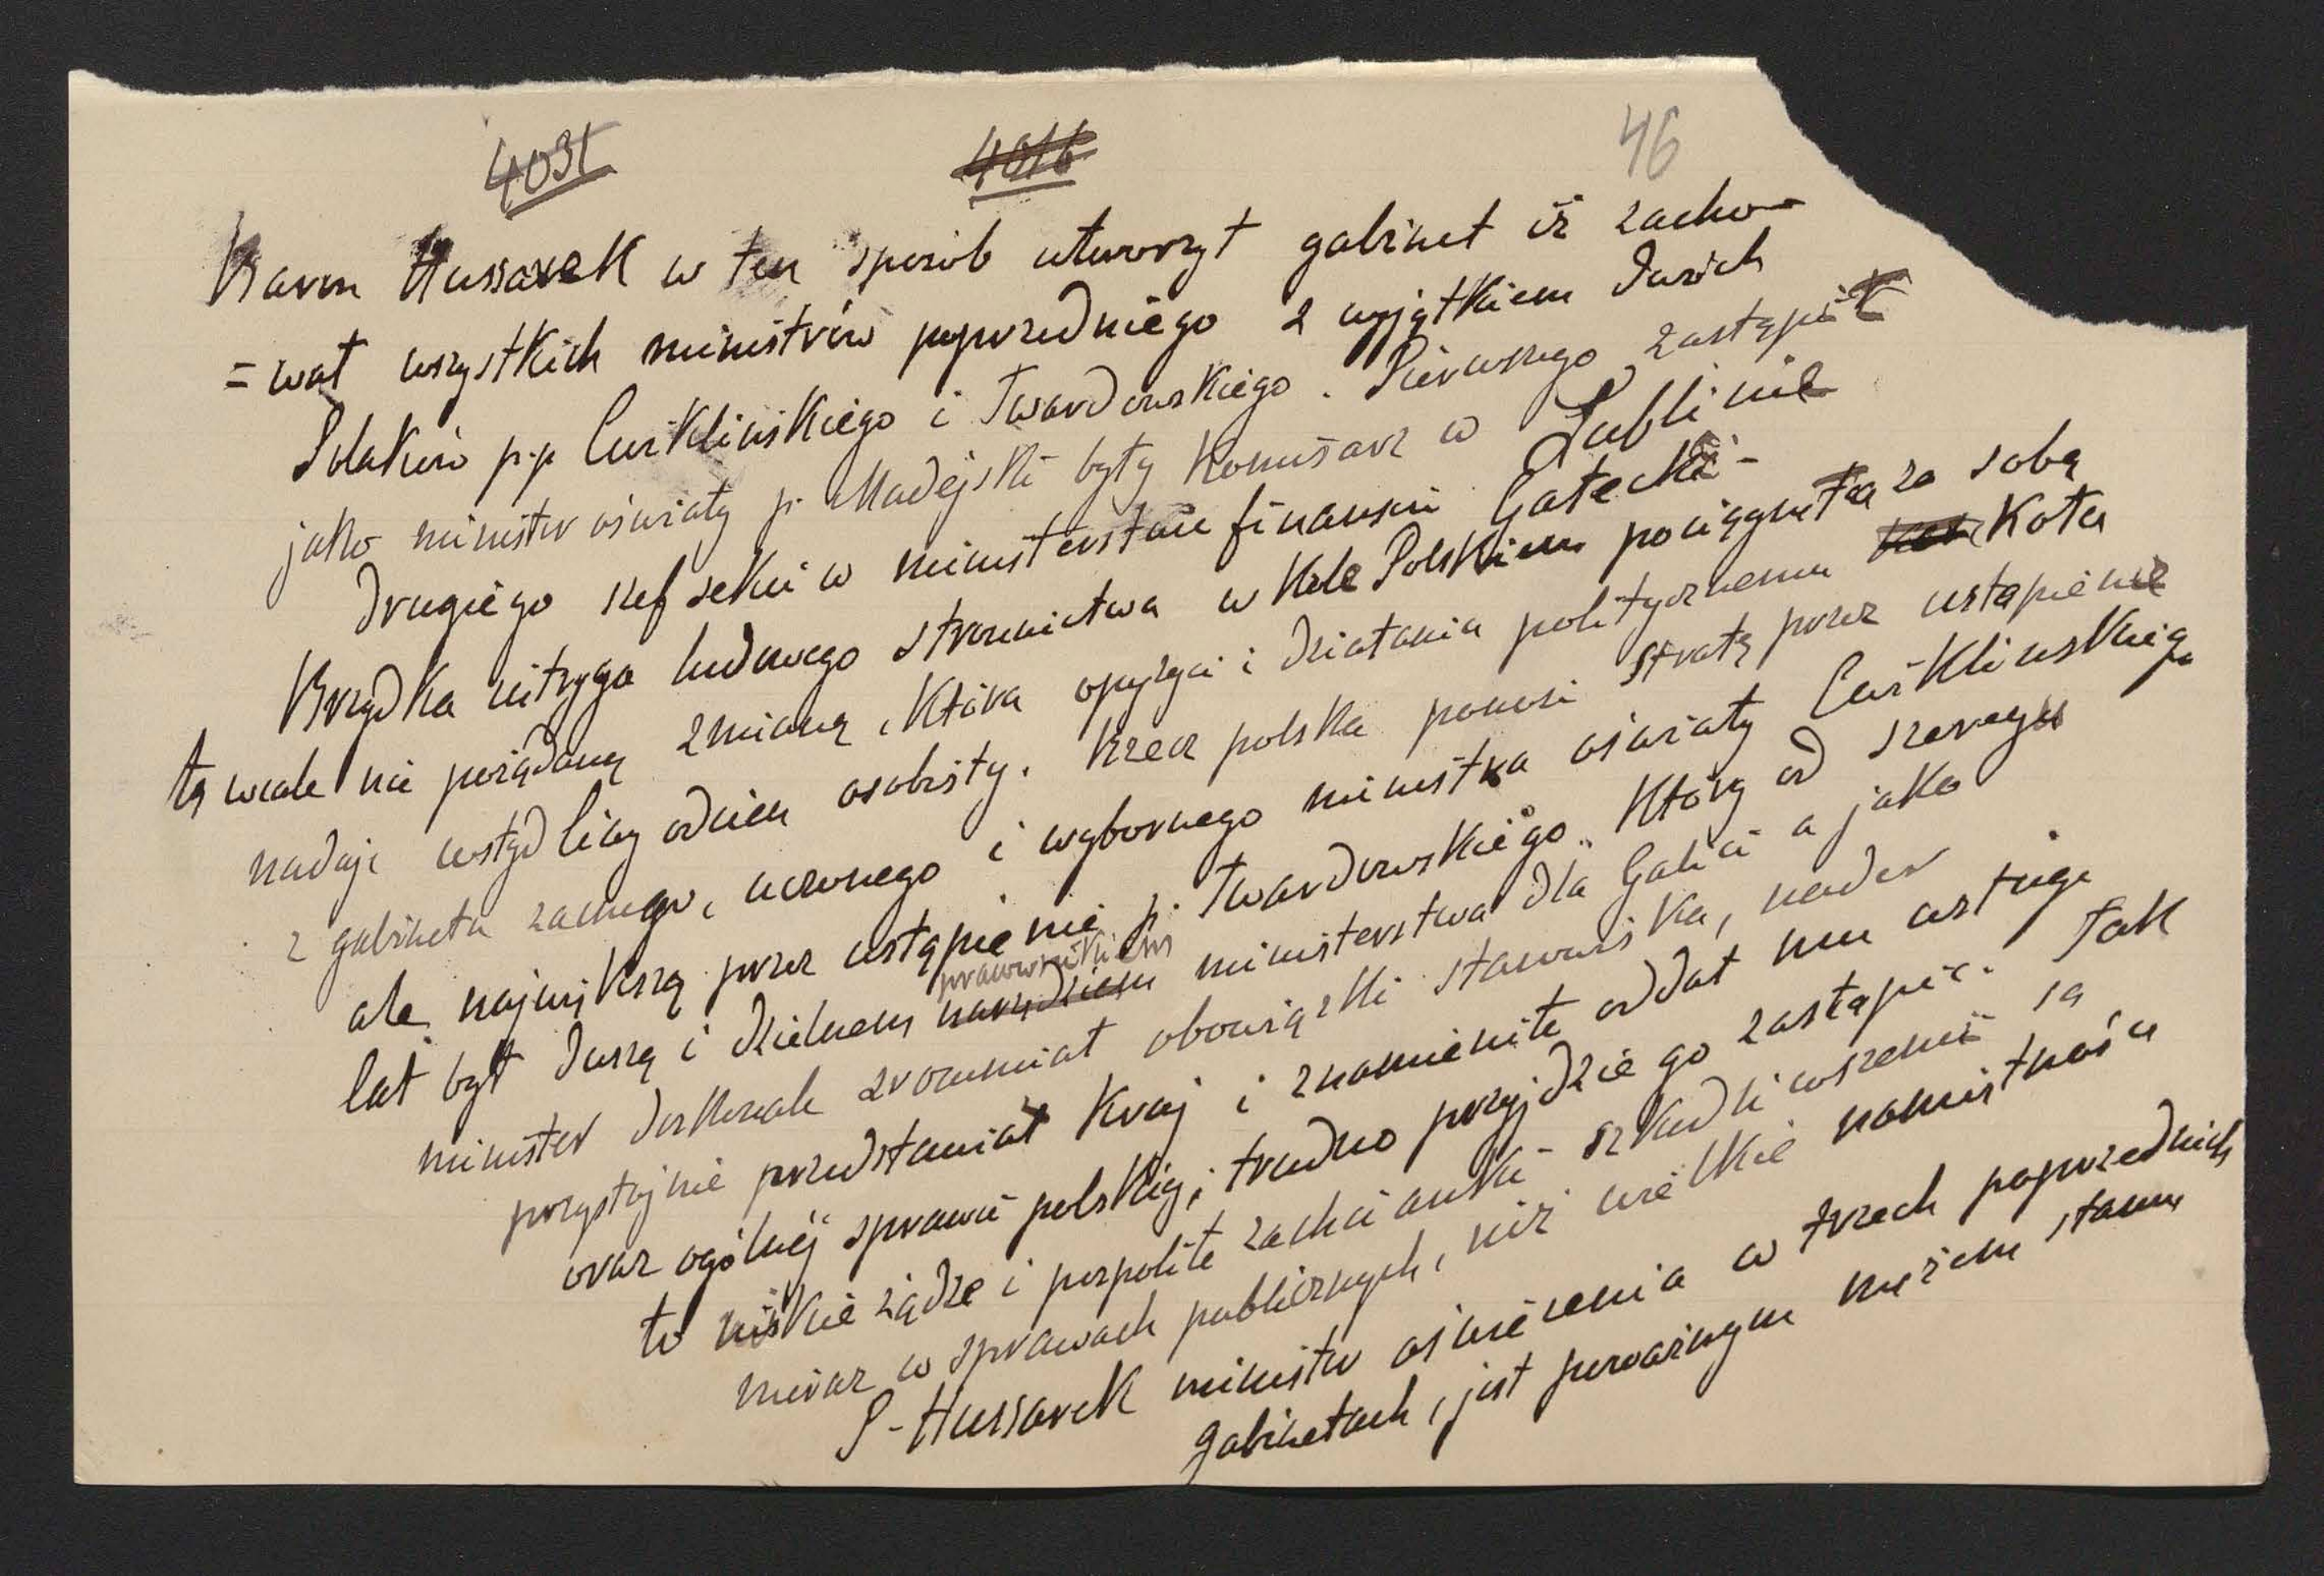 4031 ~~4016~~ 46
Baron Hussarek w ten sposób utworzył gabinet iż zacho-
=wał wszystkich ministrów poprzedniego z wyjątkiem dwóch
Polaków p.p. Ćwiklińskiego i Twardowskiego. Pierwszego zastąpił
jako minister oświaty p. Madejski były Komisarz w Lublinie
drugiego szef sekcii w ministerstwie finansów Gałecki-
Brzydka intryga ludowego stronnictwa w Kole Polskiem pociągnęła za sobą
tą wcale nie pożądaną zmianę, która opozycii i działaniu politycznemu ~~Koł~~ Koła
nadaje wstydliwy odcień osobisty. Rzecz polska ponosi stratę przez ustąpienie
z gabinetu zacnego, uczonego i wybornego ministra oświaty Ćwiklińskiego
ale największą przez ustąpienie p. Twardowskiego, który od szeregu
lat był duszą i dzielnem ~~narzędziem~~ pracownikiem ministerstwa dla Galicii a jako
minister doskonale zrozumiał obowiązki stanowiska, nader
przystojnie przedstawiał Kraj i znamienite oddał mu usługi
oraz ogólnej sprawie polskiej; trudno przyjdzie go zastąpić. Tak
to niskie żądze i pospolite zachcianki szkodliwszemi są
nieraz w sprawach publicznych, niż wielkie namiętności
P- Hussarek minister oświecenia w trzech poprzednich
gabinetach, jest poważnym mężem stanu